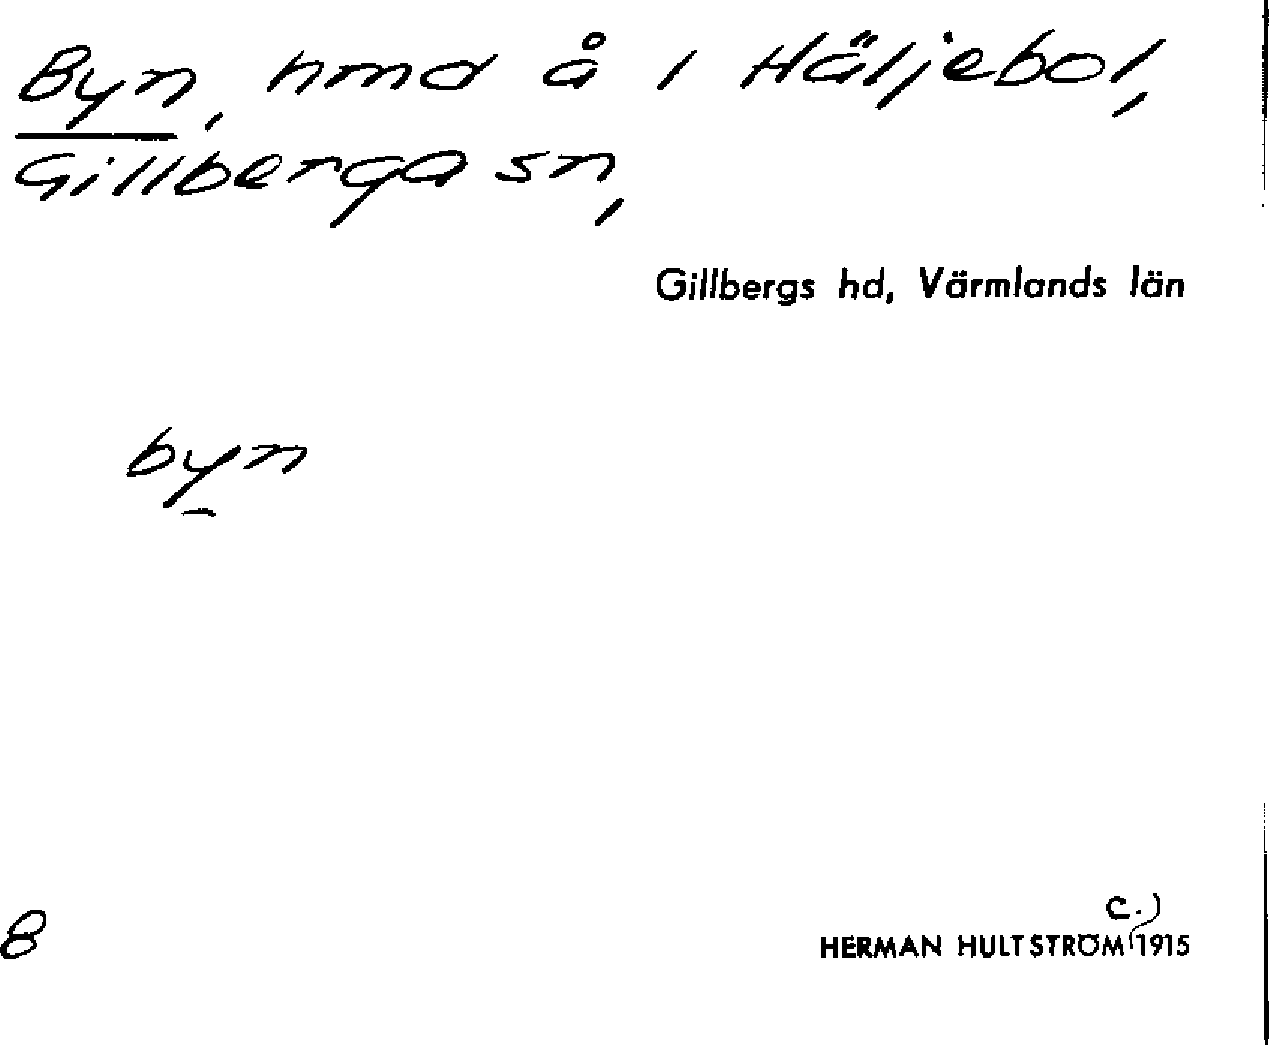 Byn, hmd å 1 Häljebol,
Gillberga sn,
Gillbergs hd, Värmlands län
byn
8
HERMAN HULTSTRÖM c. 1915